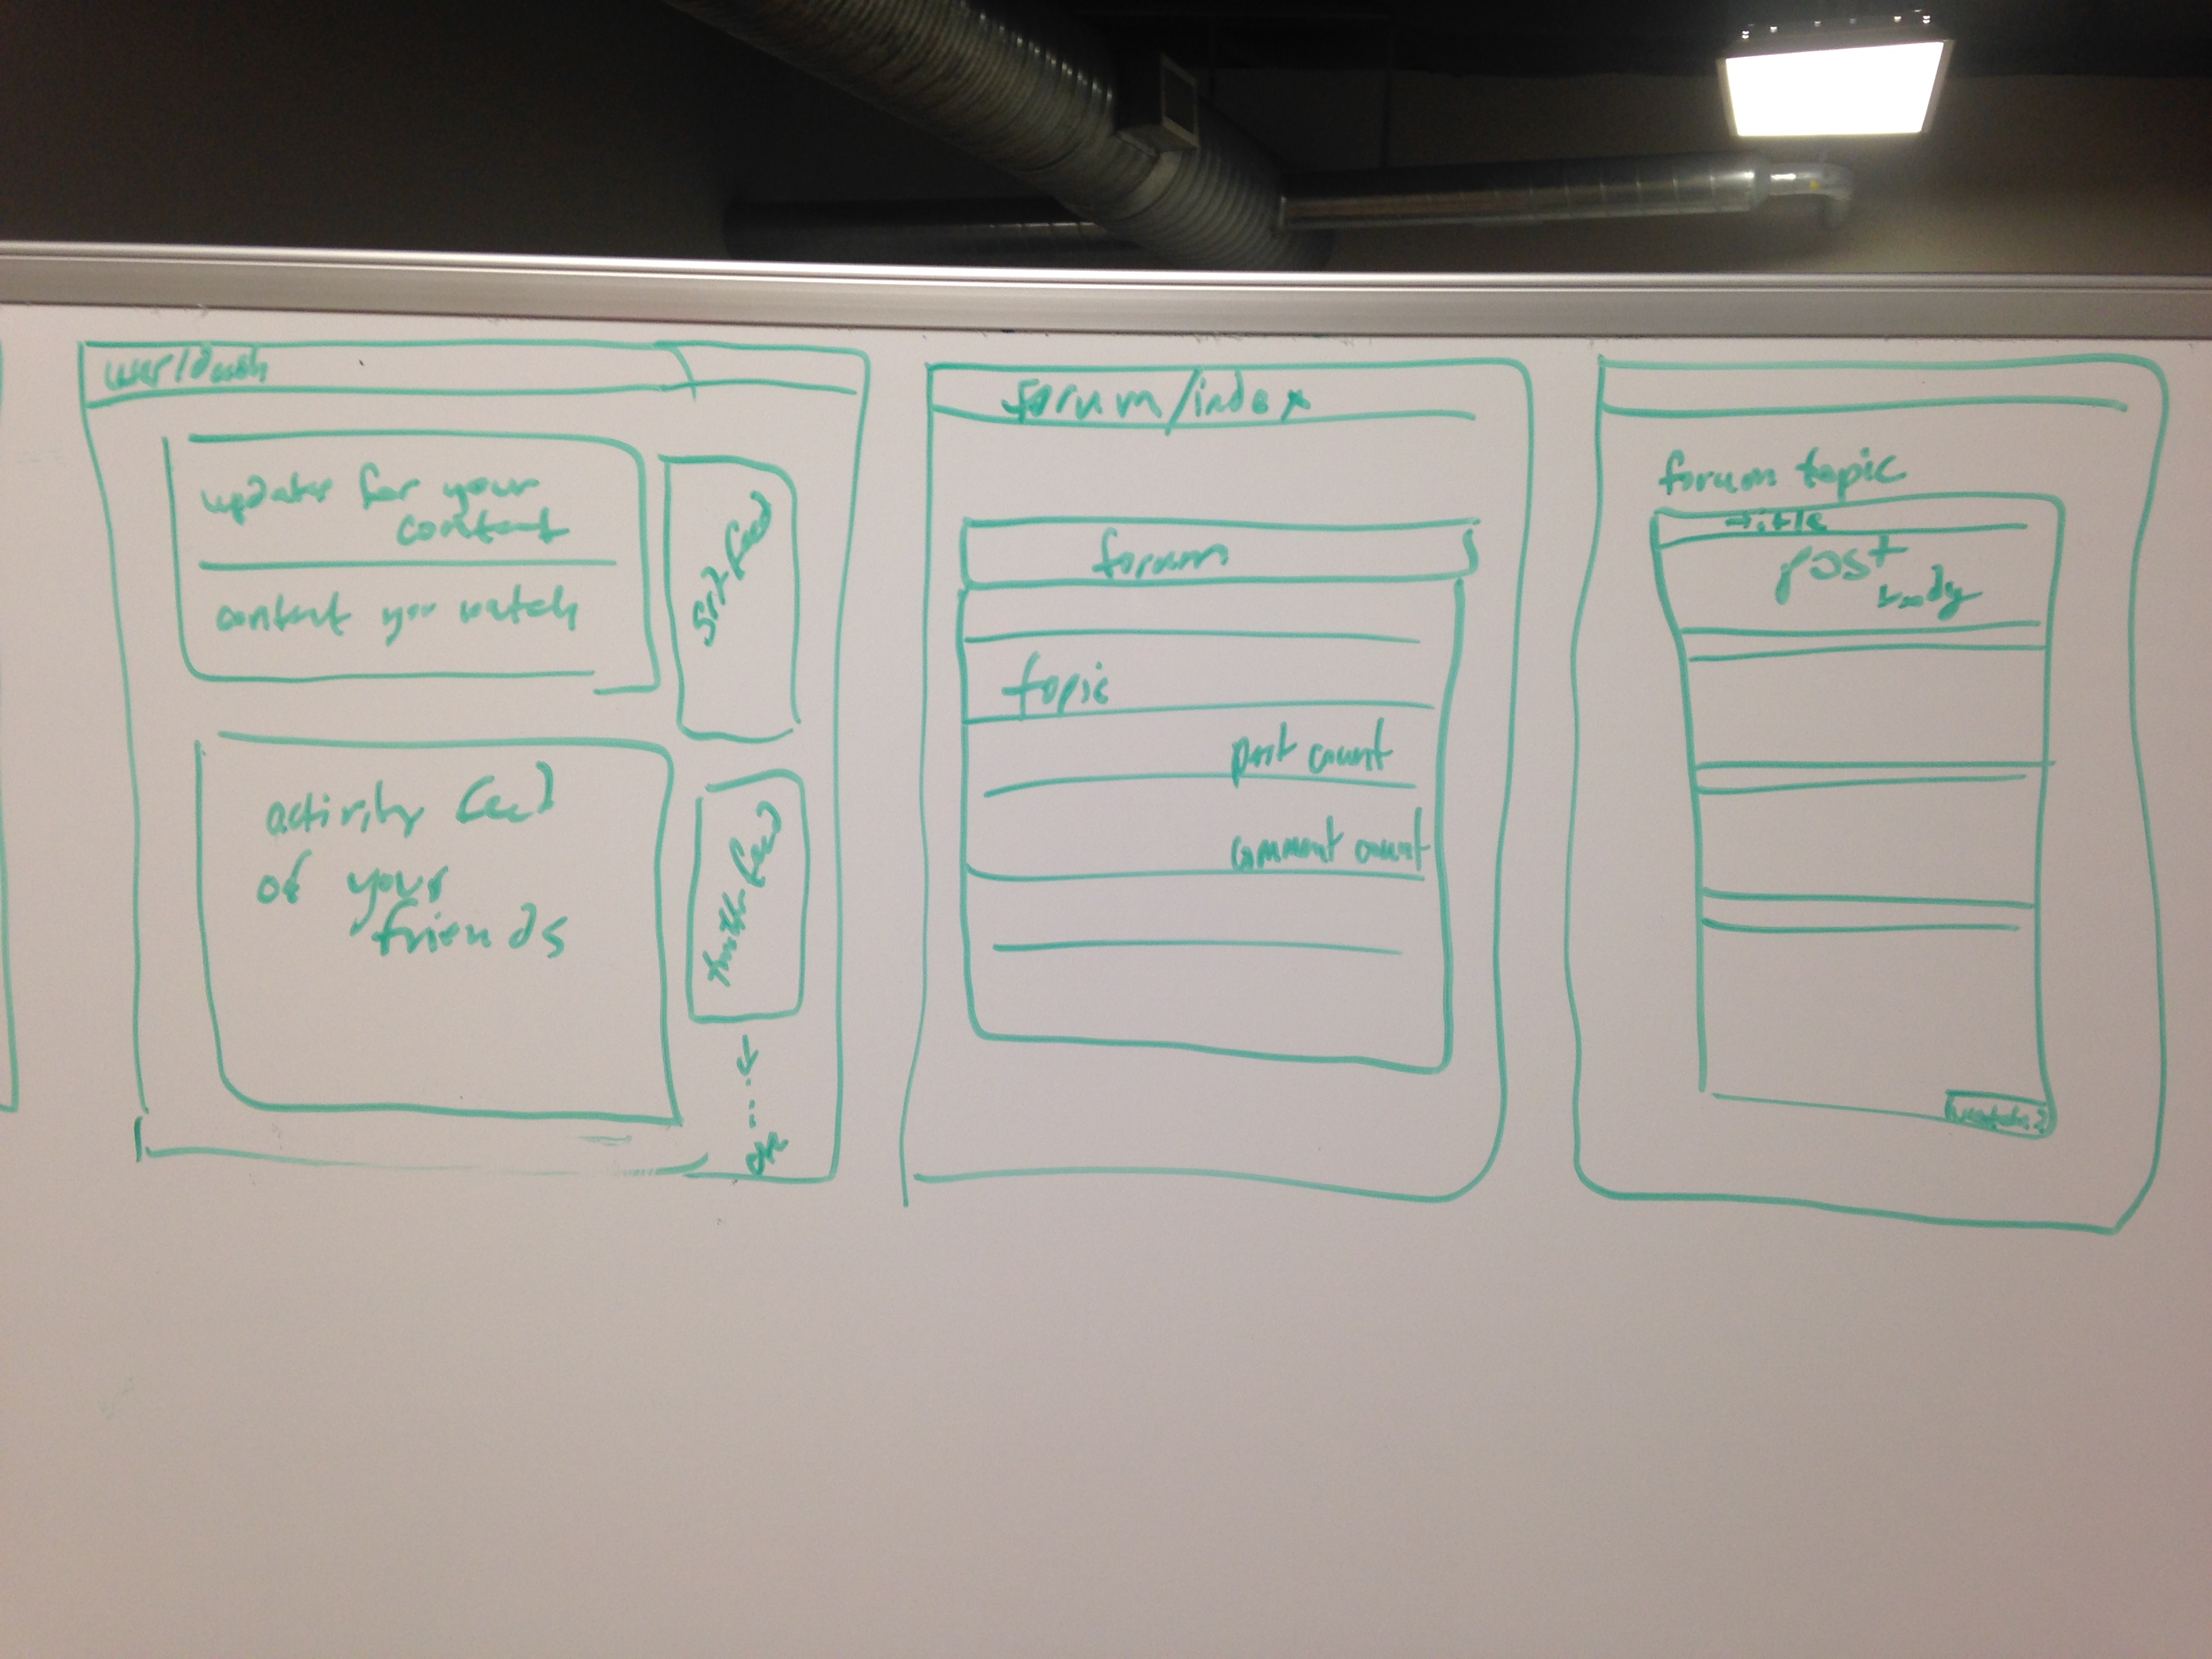 user/dash
updates for your
content
content you watch
activity feed
of your
friends
feed
feed
forum/index
forum
topic
post count
comment count
forum topic
title
post
body